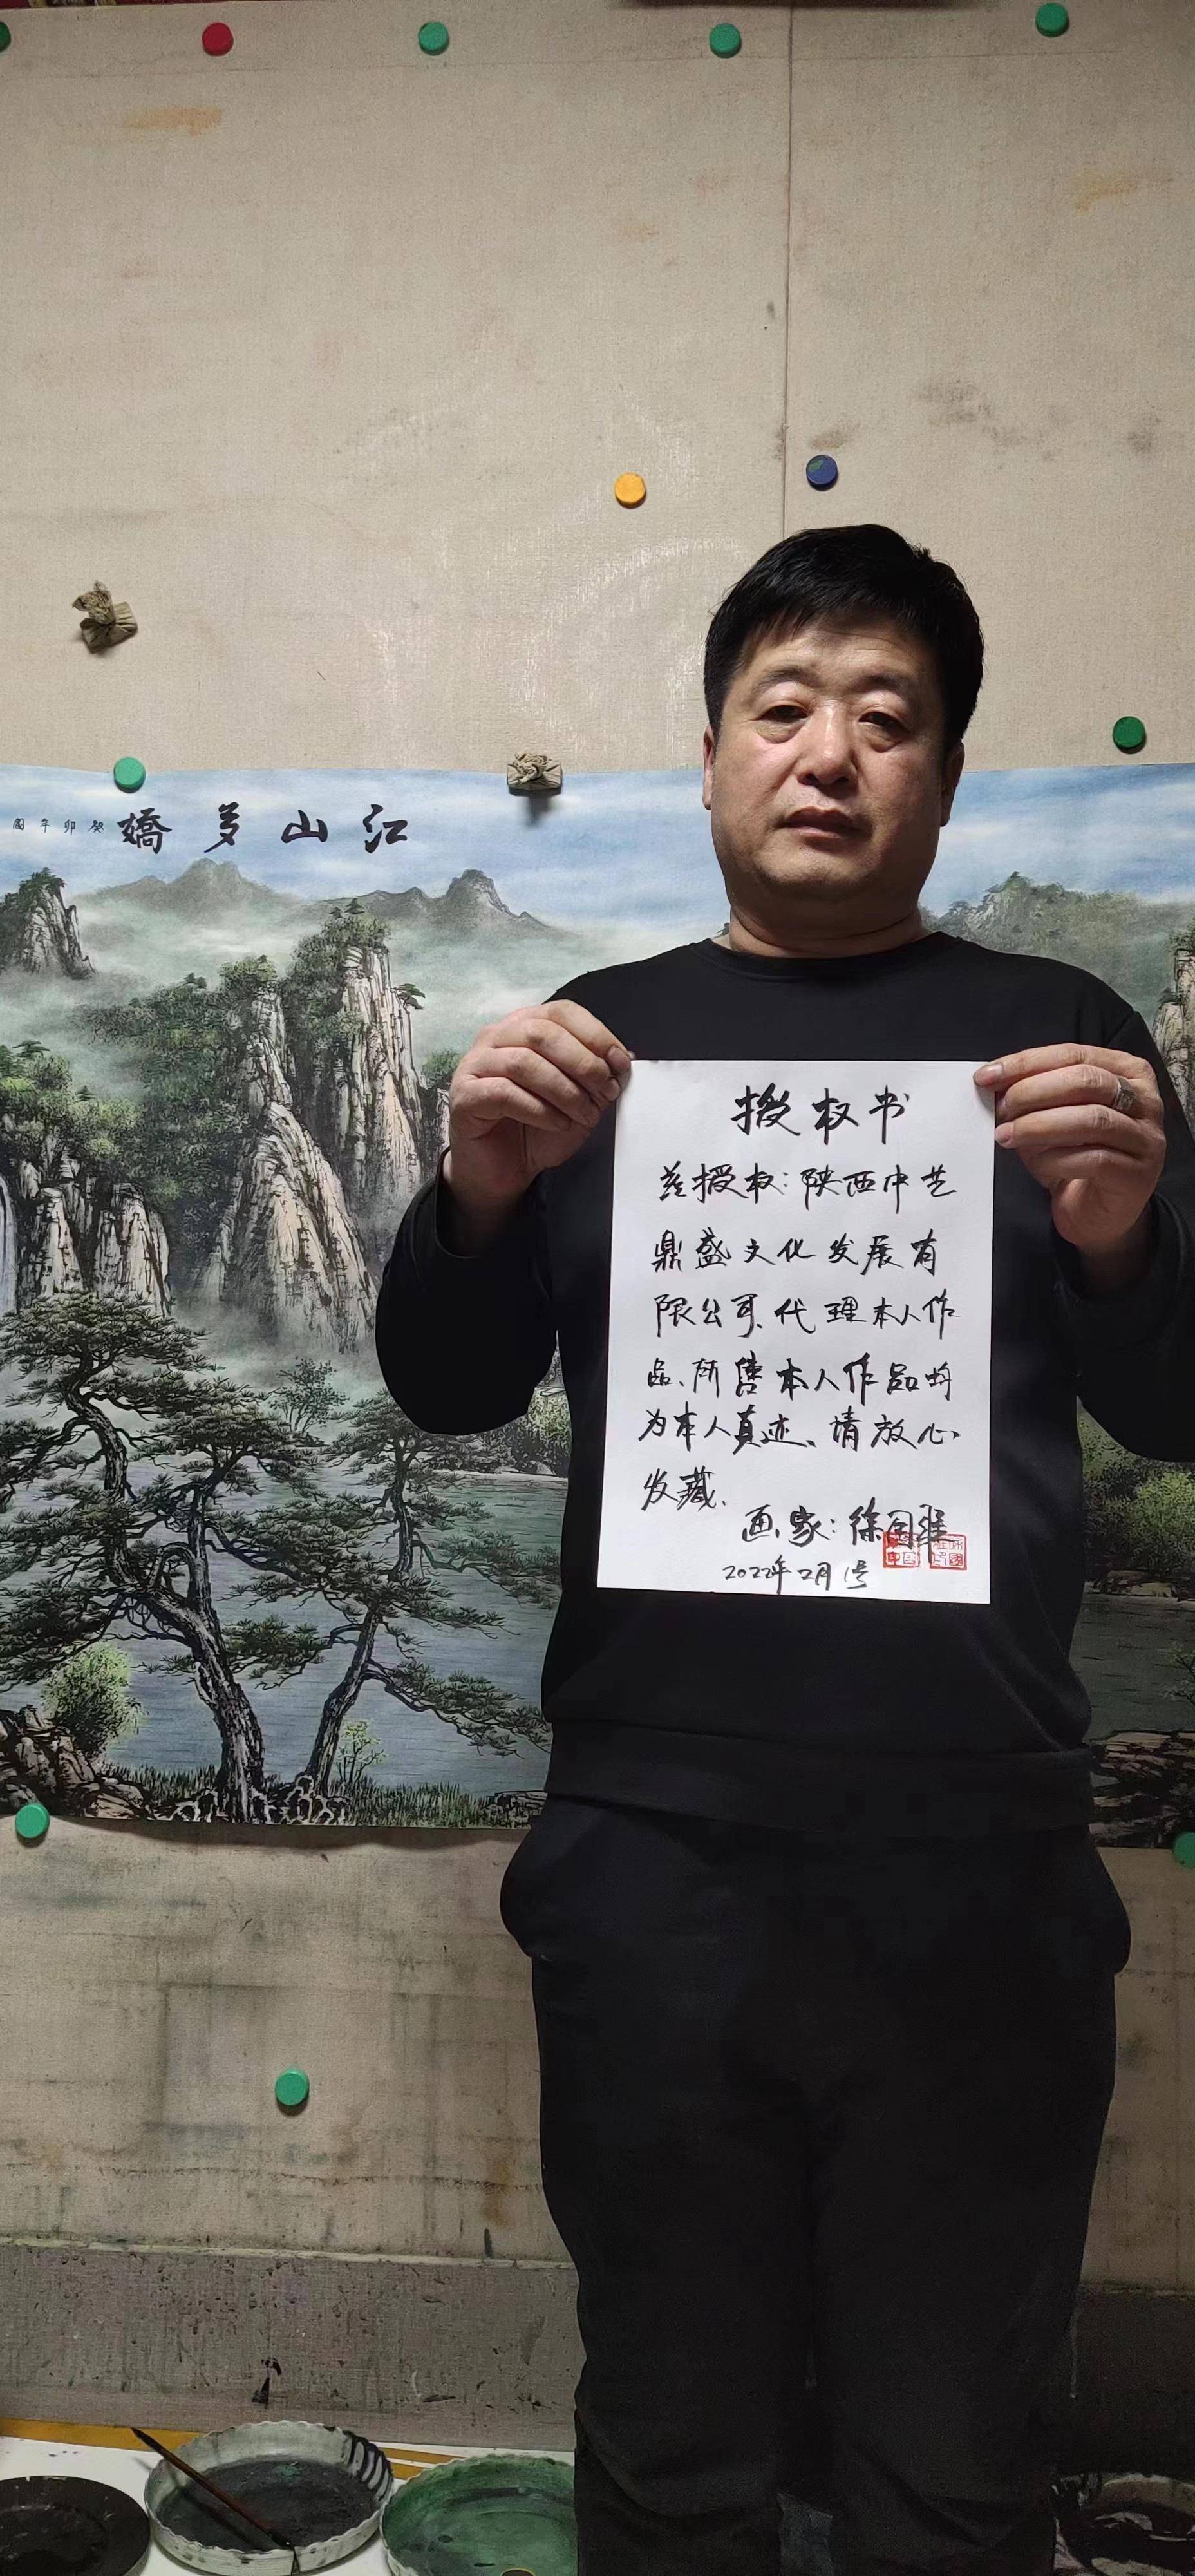 江山多嬌 癸卯年國
授权书
兹授权:陕西中艺
鼎盛文化发展有
限公司、代理本人作
品、所售本人作品均
为本人真迹、请放心
收藏.
画家:徐国
2022年2月1号